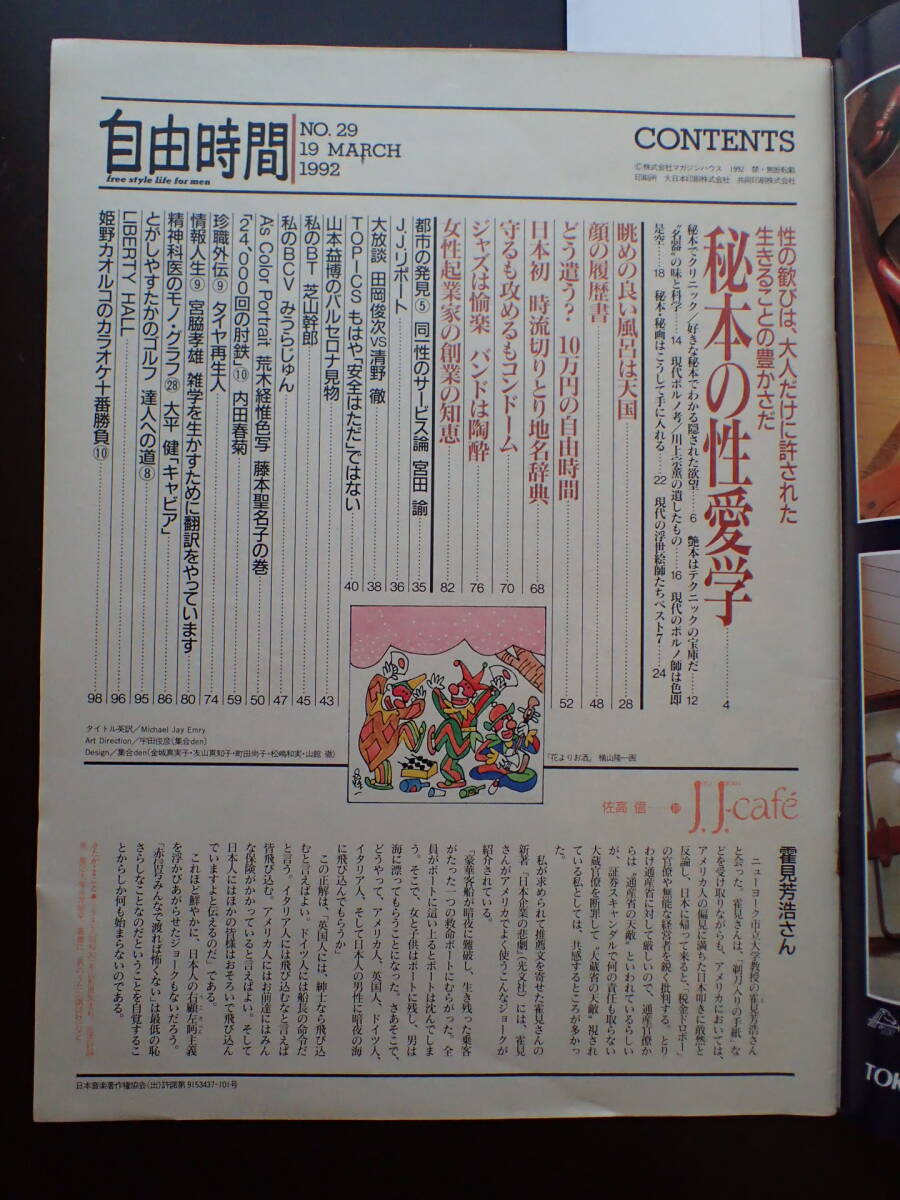 自由時間
free style life for men
NO. 29
19 MARCH
1992
CONTENTS
©株式会社マガジンハウス 1992 禁・無断転載
印刷所 大日本印刷株式会社 共同印刷株式会社
性の歓びは、大人だけに許された
生きることの豊かさだ
秘本の性愛学 4
秘本でクリニック/好きな秘本でわかる隠された欲望 6 艶本はテクニックの宝庫だ 12
“名器”の味と科学 14 現代ポルノ考/川上宗薫の遺したもの 16 現代のポルノ師は色即
是空 18 秘本・秘画はこうして手に入れる 22 現代の浮世絵師たちベスト7 24
眺めの良い風呂は天国 28
顔の履歴書 48
どう遣う? 10万円の自由時間 52
日本初 時流切りとり地名辞典 68
守るも攻めるもコンドーム 70
ジャズは愉楽 バンドは陶酔 76
女性起業家の創業の知恵 82
都市の発見⑤ 同一性のサービス論 宮田 諭 35
J.J.リポート 36
大放談 田岡俊次VS清野 徹 38
TOPICS もはや「安全はただ」ではない 40
山本益博のバルセロナ見物 43
私のBT 芝山幹郎 45
私のBCV みうらじゅん 47
As Color Portrait 荒木経惟色写 藤本聖名子の巻 50
「24,000回の肘鉄」⑩ 内田春菊 59
珍職外伝⑨ タイヤ再生人 74
情報人生⑨ 宮脇孝雄 雑学を生かすために翻訳をやっています 80
精神科医のモノ・グラフ㉘ 大平 健「キャビア」 86
とがしやすたかのゴルフ 達人への道⑧ 95
LIBERTY HALL 96
姫野カオルコのカラオケ十番勝負⑩ 98
タイトル英訳/Michael Jay Emry
Art Direction/宇田俊彦(集合den)
Design/集合den(金城真実子・友山真知子・町田尚子・松嶋和実・山館 徹)
「花よりお酒」 横山隆一画
J.J.café
佐高 信
霍見芳浩さん
ニューヨーク市立大学教授の霍見芳浩さん
と会った。霍見さんは、「剃刀入りの手紙」な
どを受け取りながらも、アメリカにおいては、
アメリカ人の偏見に満ちた日本叩きに敢然と
反論し、日本に帰って来ると、「税金ドロボー」
の官僚や無能な経営者を鋭く批判する。とり
わけ通産省に対して厳しいので、通産官僚か
らは“通産省の天敵”といわれているらしい
が、証券スキャンダルで何の責任も取らない
大蔵官僚を断罪して“大蔵省の天敵”視され
ている私としては、共感するところが多かっ
た。
私が求められて推薦文を寄せた霍見さんの
新著『日本企業の悲劇』(光文社)には、霍見
さんがアメリカでよく使うこんなジョークが
紹介されている。
「豪華客船が暗夜に難破し、生き残った乗客
がたった一つの救命ボートにむらがった。全
員がボートに這い上るとボートは沈んでしま
う。そこで、女と子供はボートに残し、男は
海に漂ってもらうことになった。さあそこで、
どうやって、アメリカ人、英国人、ドイツ人、
イタリア人、そして日本人の男性に暗夜の海
に飛び込んでもらうか」
この正解は、「英国人には、紳士なら飛び込
むと言えばよい。ドイツ人には船長の命令だ
と言う。イタリア人には飛び込むなと言えば
皆飛び込む。アメリカ人にはお前達にはみん
な保険がかかっていると言えばよい。そして
日本人にはほかの皆様はおそろいで飛び込ん
でいますよと伝えるのだ」である。
これほど鮮やかに、日本人の右顧左眄主義
を浮かびあがらせたジョークもないだろう。
「赤信号みんなで渡れば怖くない」は最低の恥
さらしなことなのだということを自覚するこ
とからしか何も始まらないのである。
日本音楽著作権協会(出)許諾第9153437-101号
TOK